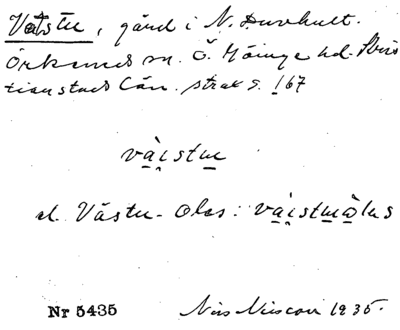 Västu, gård i N. Duvhult.
Örkeneds sn. Ö. Göinge hd. Kris
tianstads län. strax S. 167
väistu
el. Västu-Olas: väistuòlas
Nr 5435 Nils Nilsson 1935.